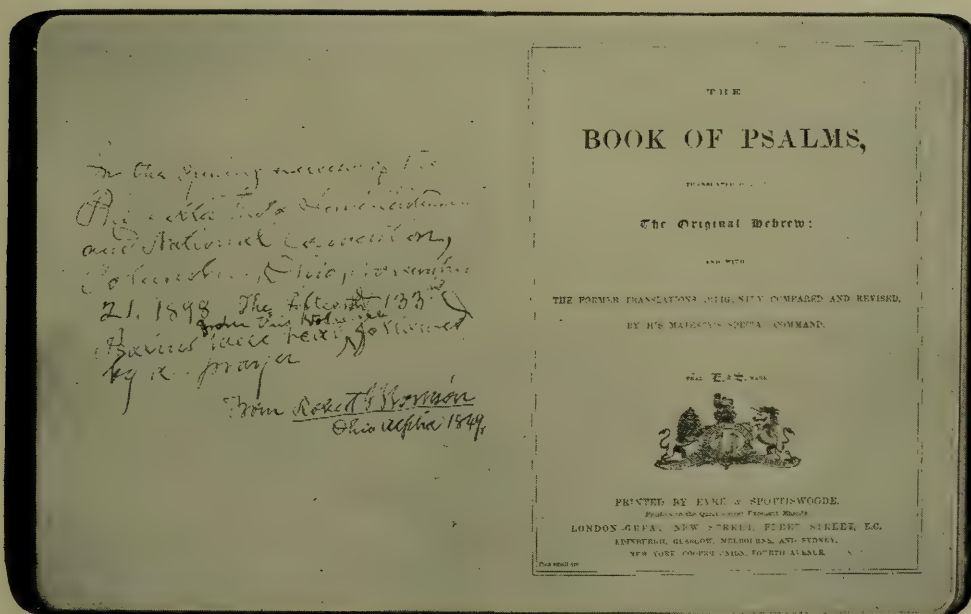 In the opening exercises of the
Phi Delta Theta Semi-Centennial
and National Convention,
Columbus, Ohio, November
21, 1898 The fifteenth 133rd
from this Volume
Psalms were read, followed
by a prayer
From Robert Morrison
Ohio Alpha 1849.
THE
BOOK OF PSALMS,
TRANSLATED
The Original Hebrew:
AND WITH
THE FORMER TRANSLATIONS DILIGENTLY COMPARED AND REVISED,
BY HIS MAJESTY'S SPECIAL COMMAND.
PRINTED BY EYRE & SPOTTISWOODE,
Printers to the Queen's most Excellent Majesty
LONDON—GREAT NEW STREET, FLEET STREET, E.C.
EDINBURGH, GLASGOW, MELBOURNE, AND SYDNEY.
NEW YORK, COOPER UNION, FOURTH AVENUE.